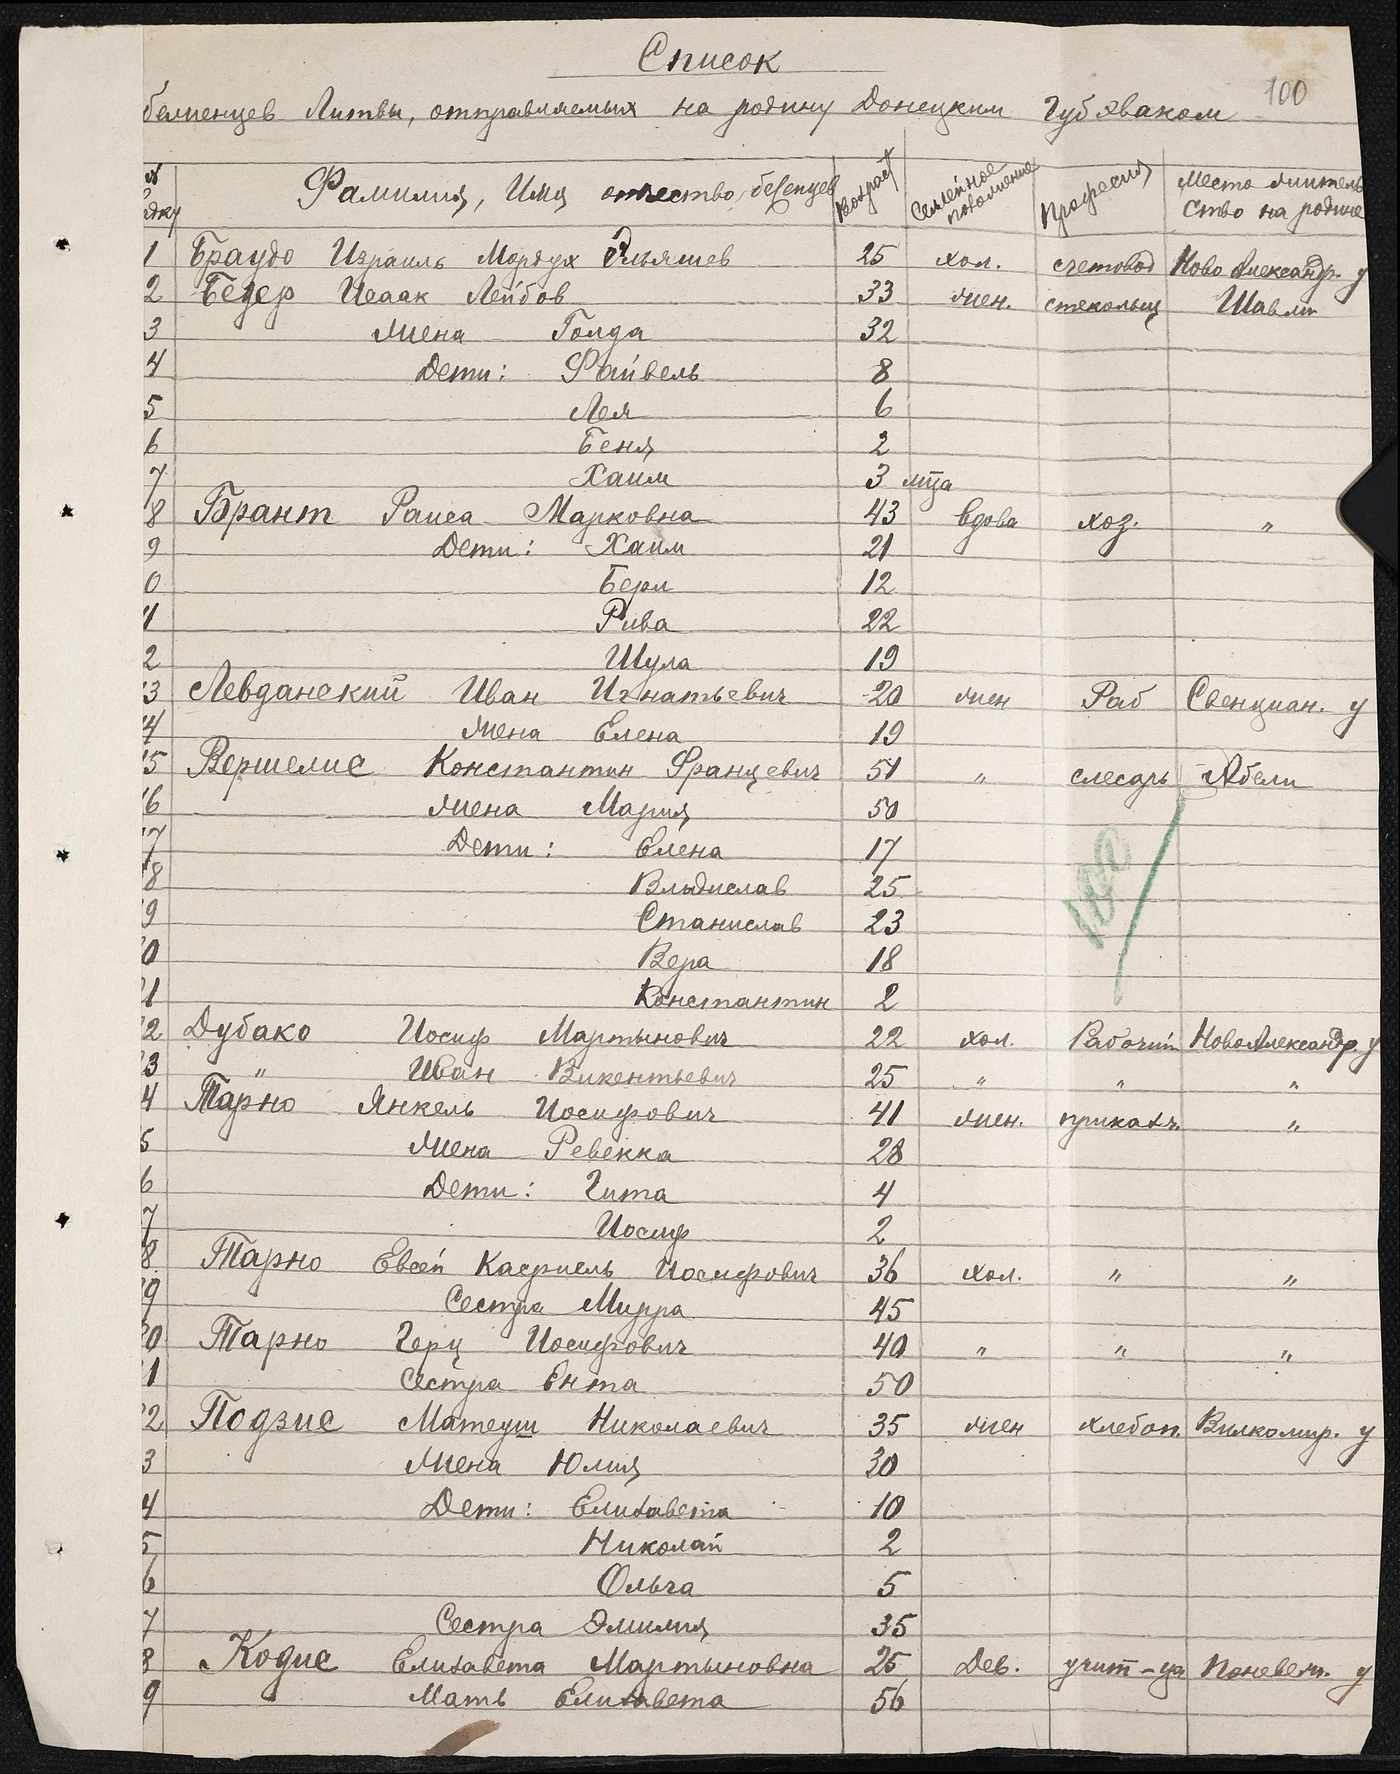 Список
100
беженцев Литвы, отправляемых на родину Донецким Губэваком
№ Фамилия, Имя отчество беженцев Возраст Семейное положение Професия Место житель
ство на родине
1 Браудо Израиль Мордух Эльяшев 25 хол. счетовод Ново Александр. у
2 Бедер Исаак Лейбов 33 жен. стекольщ Шавли
3 жена Голда 32
4 Дети: Файвель 8
5 Лея 6
6 Беня 2
7 Хаим 3 м-ца
8 Брант Раиса Марковна 43 вдова хоз. "
9 Дети: Хаим 21
0 Берл 12
1 Рива 22
2 Шула 19
3 Левданский Иван Игнатьевич 20 жен Раб Свенциан. у
4 жена Елена 19
5 Вершелис Константин Францевич 51 " слесарь Абели
6 жена Мария 50
7 Дети: Елена 17
8 Владислав 25
9 Станислав 23
0 Вера 18
1 Константин 2
2 Дубако Иосиф Мартынович 22 хол. Рабочий НовоАлександр. у
3 " Иван Викентьевич 25 " " "
4 Тарно Янкель Иосифович 41 жен. приказч. "
5 жена Ревекка 28
6 Дети: Гита 4
7 Иосиф 2
8 Тарно Евсей Касриель Иосифович 36 хол. " "
9 Сестра Мирра 45
0 Тарно Герц Иосифович 40 " " "
1 Сестра Ента 50
2 Подзис Матеуш Николаевич 35 жен хлебоп. Вилкомир. у
3 жена Юлия 30
4 Дети: Елизавета 10
5 Николай 2
6 Ольга 5
7 Сестра Эмилия 35
8 Кодис Елизавета Мартыновна 25 Дев. учит-ца Поневеж. у
9 Мать Елизавета 56